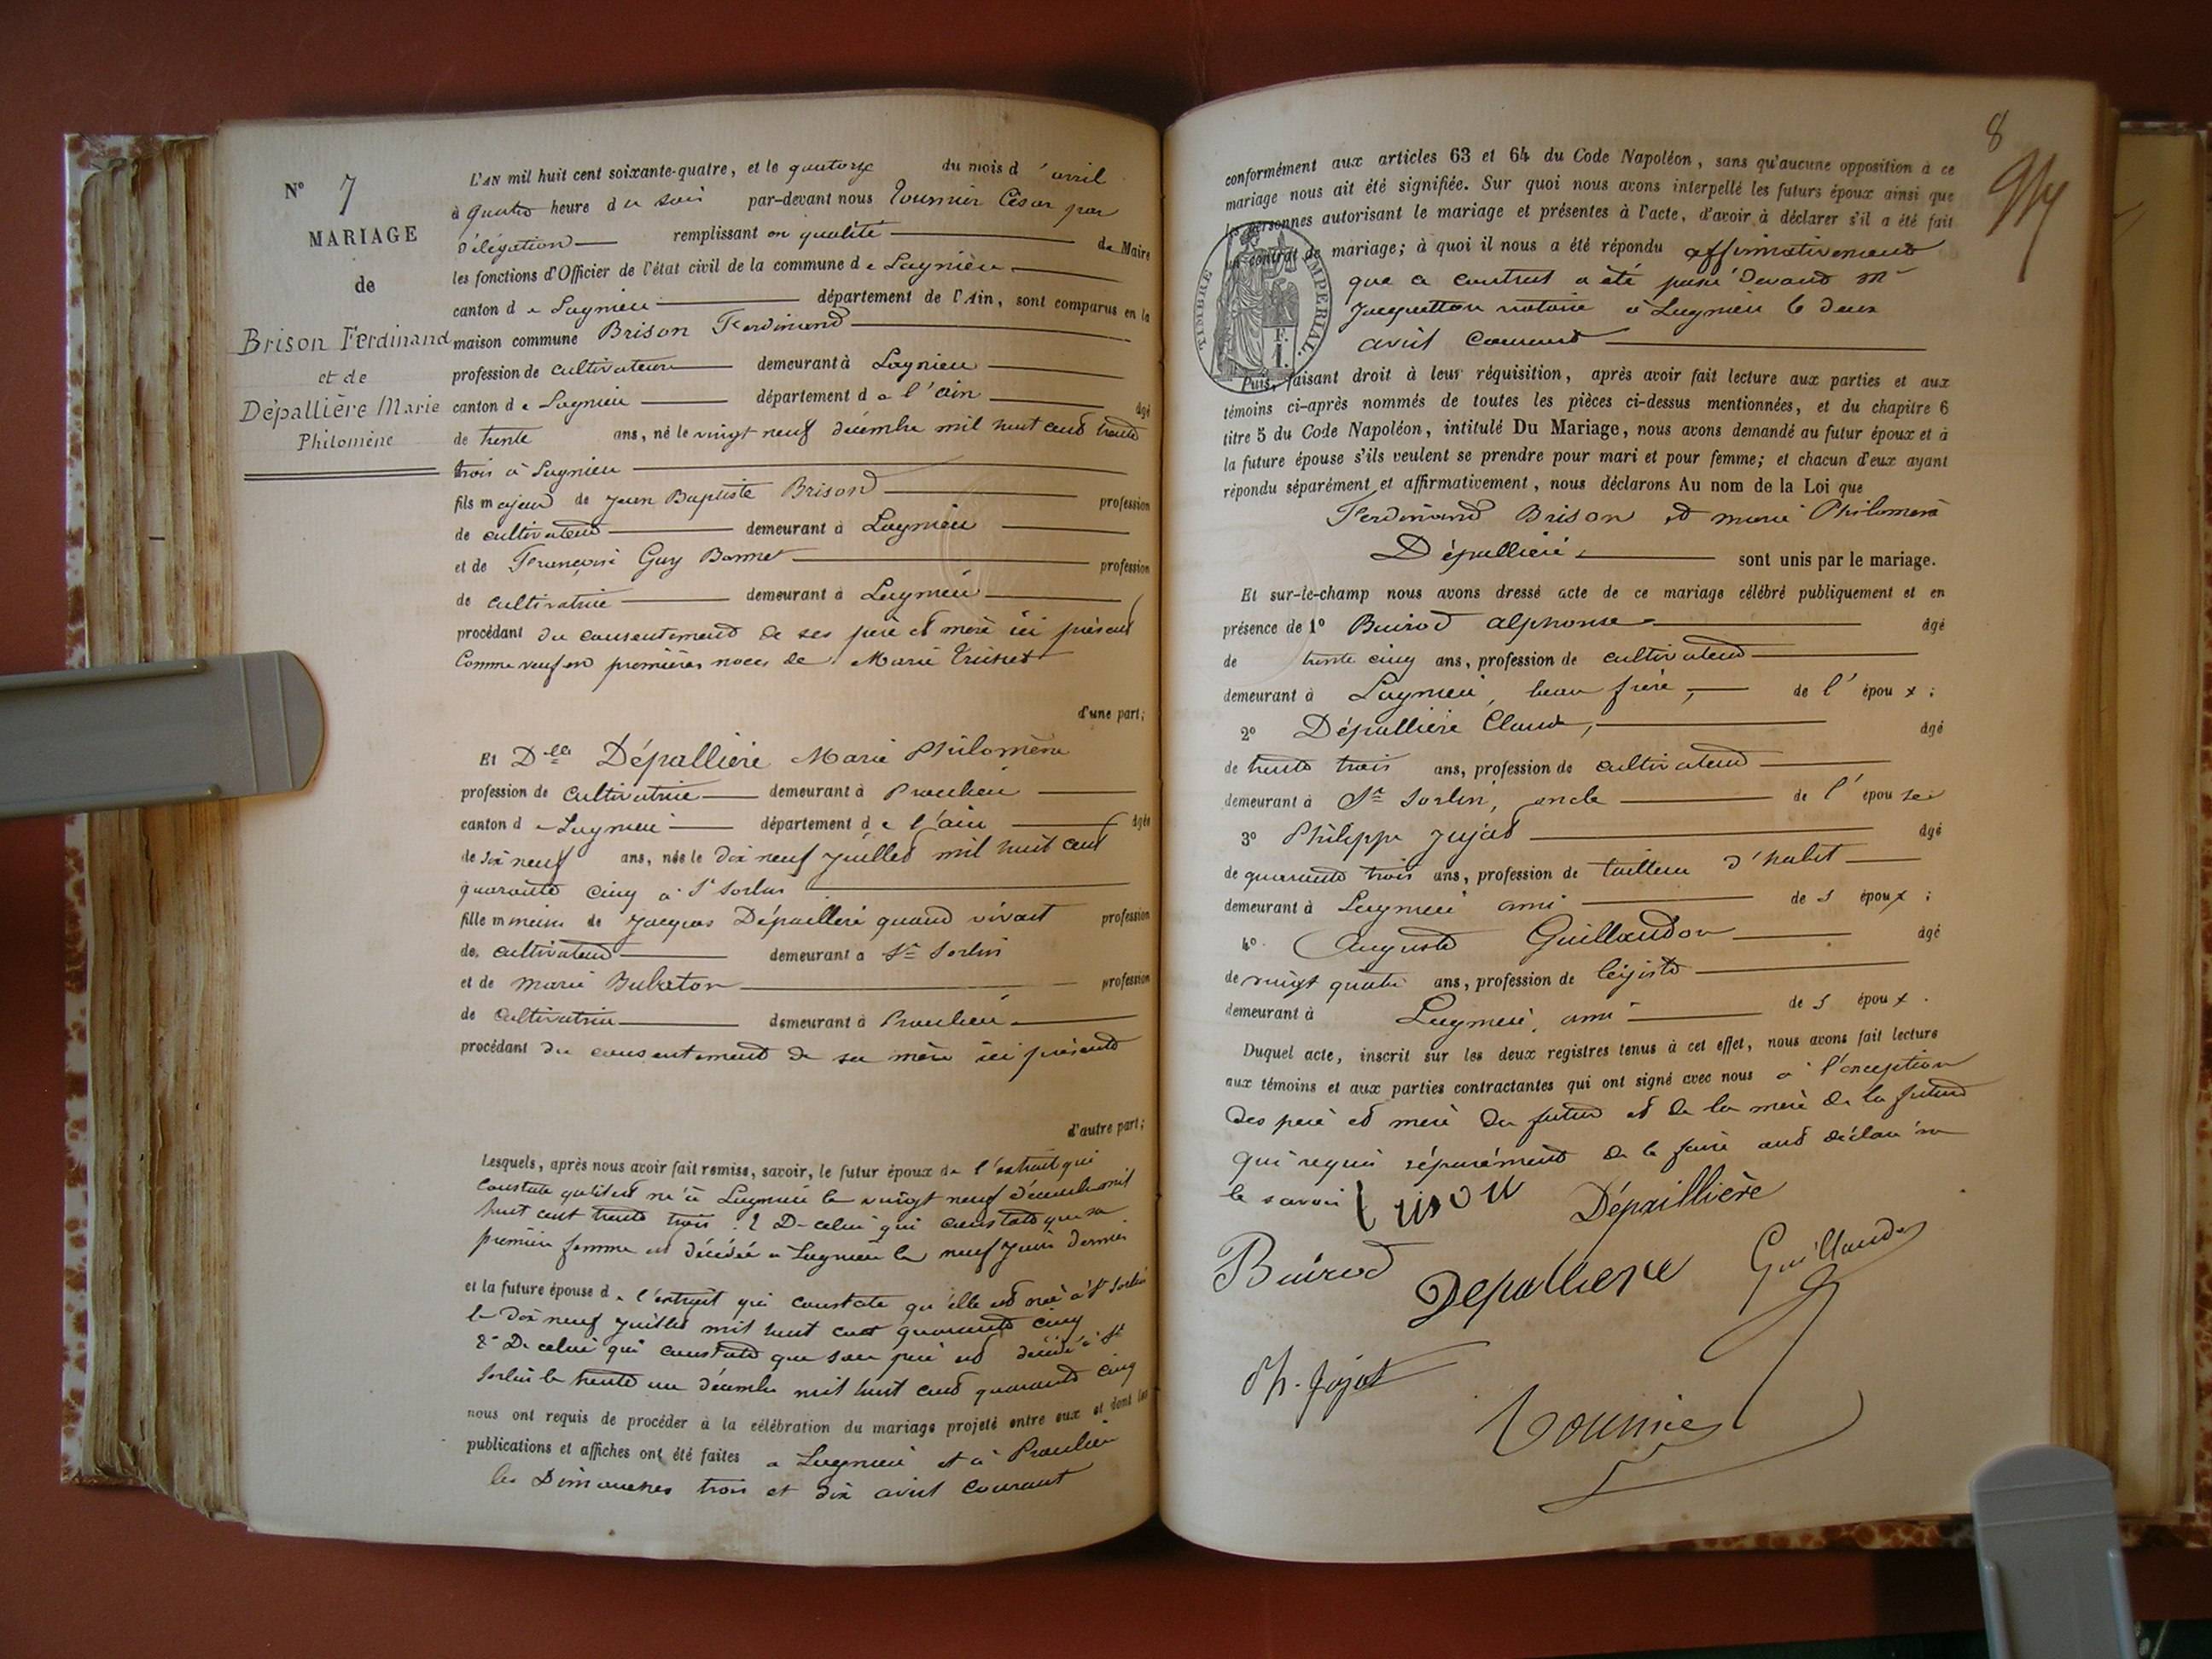 N° 7
MARIAGE
de
Brison Ferdinand
et de
Dépallière Marie
Philomène
L'AN mil huit cent soixante-quatre, et le quatorze du mois d'avril
à quatre heure du soir par-devant nous Tournier César par
délégation remplissant en qualité de Maire
les fonctions d'Officier de l'état civil de la commune de Lagnieu
canton de Lagnieu département de l'Ain, sont comparus en la
maison commune Brison Ferdinand
profession de cultivateur demeurant à Lagnieu
canton de Lagnieu département de l'ain âgé
de trente ans, né le vingt neuf décembre mil huit cent trente
trois à Lagnieu
fils majeur de Jean Baptiste Brison profession
de cultivateur demeurant à Lagnieu
et de Françoise Guy Bonnet profession
de cultivatrice demeurant à Lagnieu
procédant du consentement de ses père et mère ici présent
Comme veuf en premières noces de Marie
d'une part;
Et Delle Dépallière Marie Philomène
profession de cultivatrice demeurant à Proulieu
canton de Lagnieu département de l'ain âgée
de dix neuf ans, née le dix neuf juillet mil huit cent
quarante cinq à St Sorlin
fille mineure de Jacques Dépaillière quand vivait profession
de cultivateur demeurant à St Sorlin
et de Marie Bubaton profession
de cultivatrice demeurant à Proulieu
procédant du consentement de sa mère ici présente
d'autre part;
Lesquels, après nous avoir fait remise, savoir, le futur époux de l'extrait qui
constate qu'il est né à Lagnieu le vingt neuf décembre mil
huit cent trente trois. 2 De celui qui constate que sa
première femme est décédée à Lagnieu le neuf juin dernier
et la future épouse de l'extrait qui constate qu'elle est née à St Sorlin
le dix neuf juillet mil huit cent quarante cinq
2° De celui qui constate que son père est décédé à St
Sorlin le trente un décembre mil huit cent quarante cinq
nous ont requis de procéder à la célébration du mariage projeté entre eux et dont les
publications et affiches ont été faites à Lagnieu et à Proulieu
les Dimanches trois et dix avril courant
8
TIMBRE IMPERIAL.
conformément aux articles 63 et 64 du Code Napoléon, sans qu'aucune opposition à ce
mariage nous ait été signifiée. Sur quoi nous avons interpellé les futurs époux ainsi que
les personnes autorisant le mariage et présentes à l'acte, d'avoir à déclarer s'il a été fait
un contrat de mariage; à quoi il nous a été répondu affirmativement
que ce contrat a été passé devant Me
Jacquetton notaire à Lagnieu le deux
avril courant
Puis, faisant droit à leur réquisition, après avoir fait lecture aux parties et aux
témoins ci-après nommés de toutes les pièces ci-dessus mentionnées, et du chapitre 6
titre 5 du Code Napoléon, intitulé Du Mariage, nous avons demandé au futur époux et à
la future épouse s'ils veulent se prendre pour mari et pour femme; et chacun d'eux ayant
répondu séparément et affirmativement, nous déclarons Au nom de la Loi que
Ferdinand Brison et Marie Philomène
Dépallière sont unis par le mariage.
Et sur-le-champ nous avons dressé acte de ce mariage célébré publiquement et en
présence de 1° Buirod Alphonse âgé
de trente cinq ans, profession de cultivateur
demeurant à Lagnieu, beau frère, de l'époux;
2° Dépallière Claude, âgé
de trente trois ans, profession de cultivateur
demeurant à St Sorlin, oncle de l'épouse
3° Philippe Jujat âgé
de quarante trois ans, profession de tailleur d'habit
demeurant à Lagnieu ami des époux;
4° Auguste Guillaudon âgé
de vingt quatre ans, profession de légiste
demeurant à Lagnieu, ami des époux.
Duquel acte, inscrit sur les deux registres tenus à cet effet, nous avons fait lecture
aux témoins et aux parties contractantes qui ont signé avec nous à l'exception
des père et mère du futur et de la mère de la future
qui requis séparément de le faire ont déclaré ne
le savoir Brison Dépaillière
Buirod Depalliere Guillaudon
Ph. Jujat
Tournier